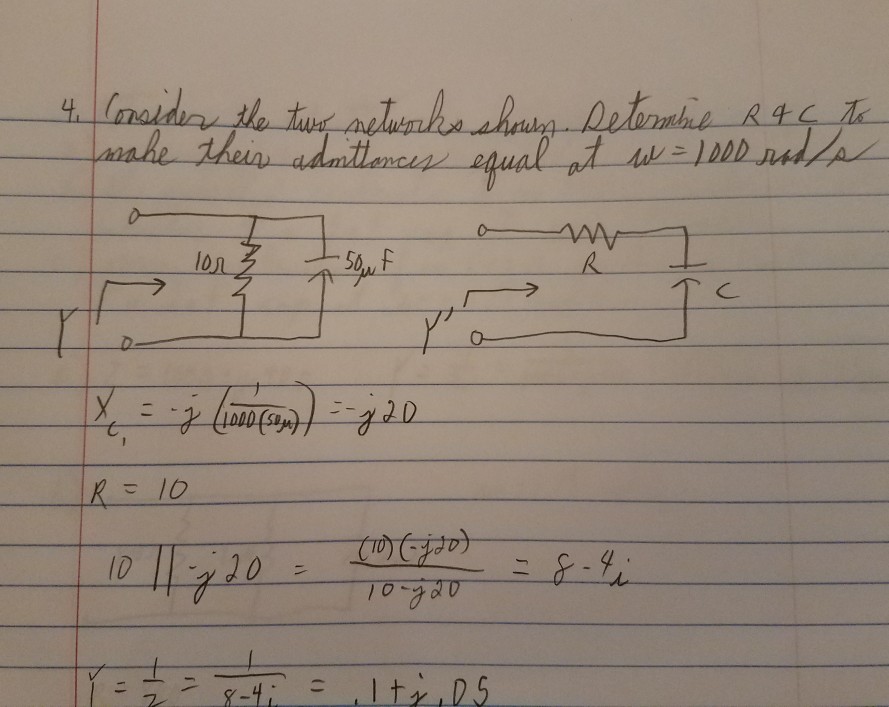 4. Consider the two networks shown. Determine R & C to
make their admittances equal at w = 1000 rad/s
10Ω
50μF
Y
R
C
Y'
X_C1 = -j (1/1000(50μ)) = -j20
R = 10
10 || -j20 = (10)(-j20)/10-j20 = 8-4i
Y = 1/Z = 1/8-4i = .1+j.05